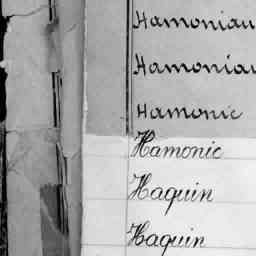 Hamoniau
Hamoniau
Hamonic
Hamonic
Haquin
Haquin